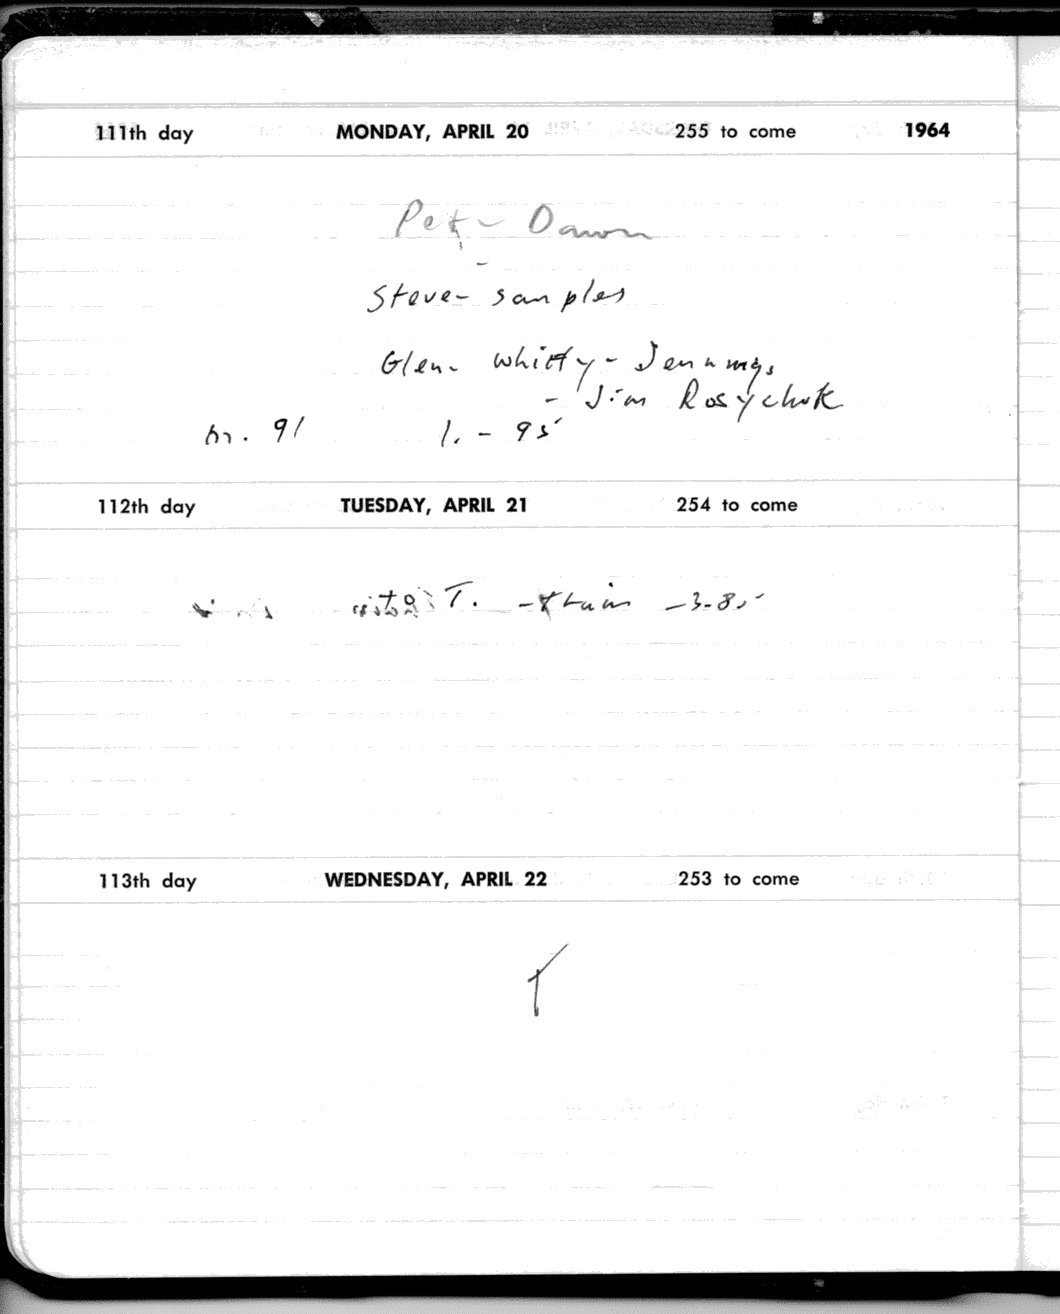 111th day MONDAY, APRIL 20 255 to come 1964
Dawn
Steve- samples
Glen- Whitty- Jennings
- Jim Rosychuk
91 1. - 95
112th day TUESDAY, APRIL 21 254 to come
to T. - train -3-85
113th day WEDNESDAY, APRIL 22 253 to come